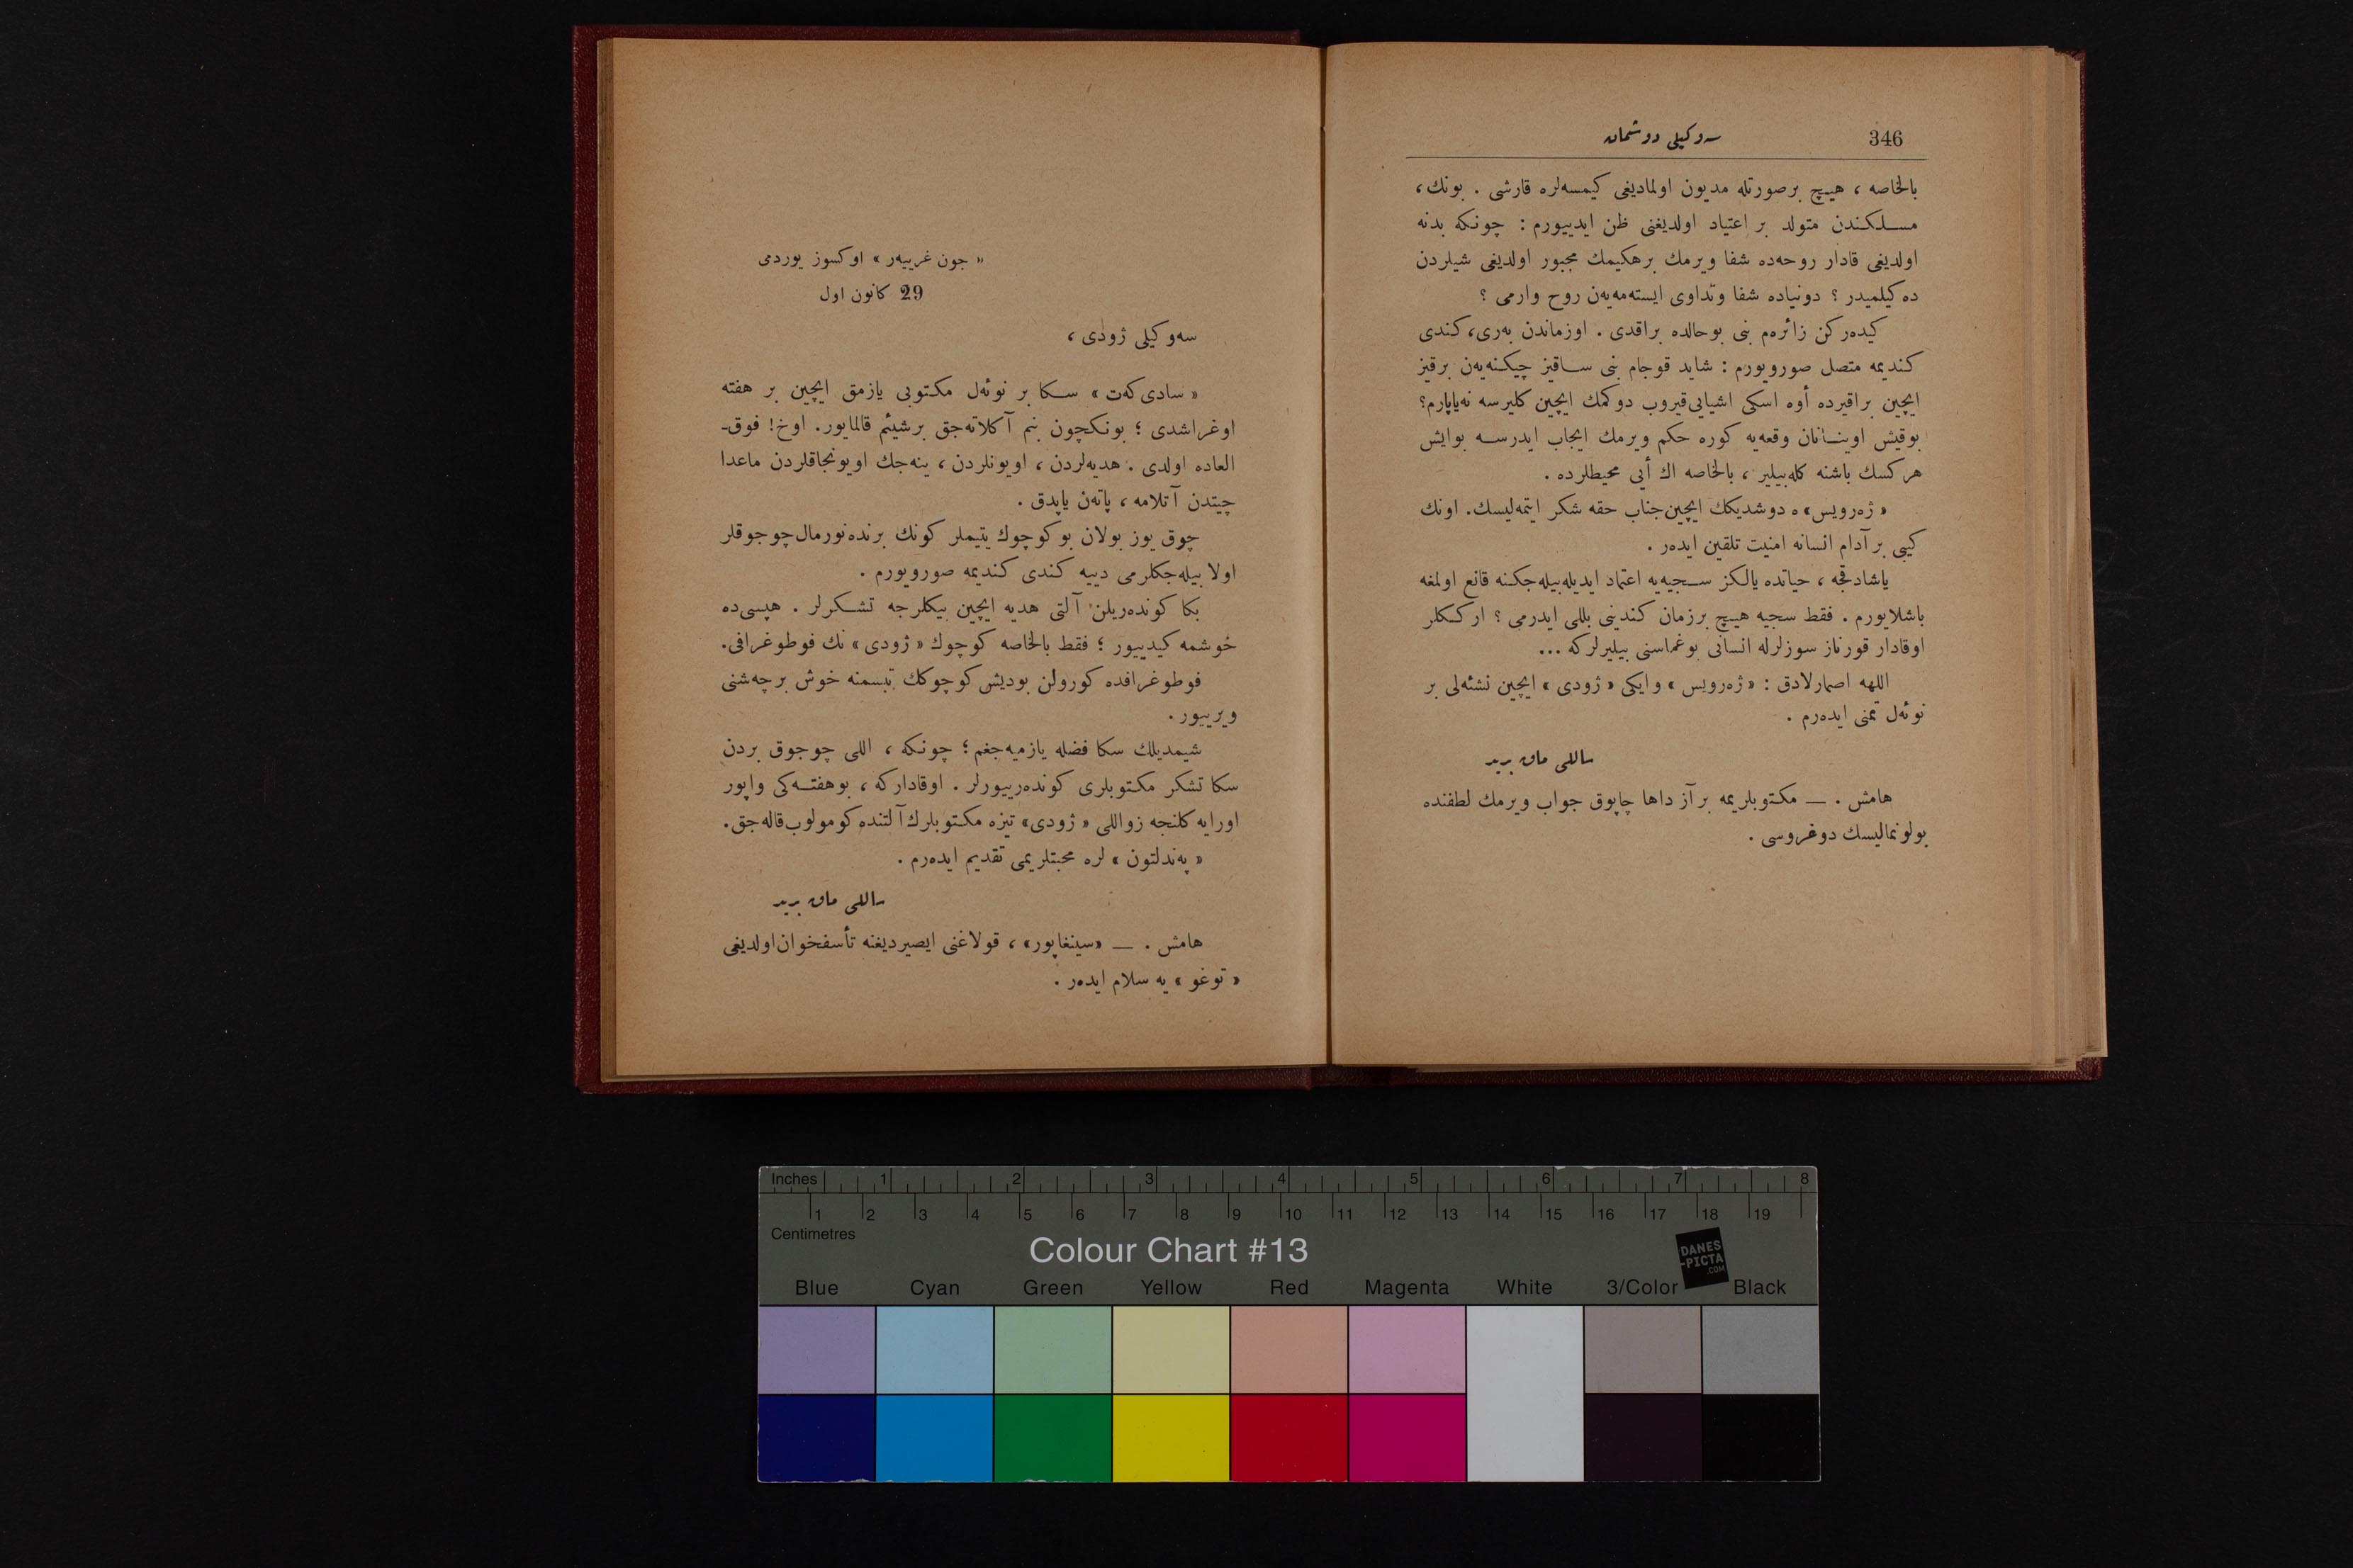 346
سه‌وكیلی دوشمان
بالخاصه ، هیچ برصورتله مدیون اولمادیغی كیمسه‌لره قارشی . بونك ،
مسلكندن متولد بر اعتیاد اولدیغنی ظن ایدییورم : چونكه بدنه
اولدیغی قادار روحه‌ده شفا ویرمك برهكیمك مجبور اولدیغی شیلردن
ده كیلمیدر ؟ دونیاده شفا وتداوی ایسته‌مه‌یه‌ن روح وارمی ؟
كیده‌ركن زائره‌م بنی بوحالده براقدی . اوزماندن به‌ری، كندی
كندیمه متصل صورویورم : شاید قوجام بنی ساقیز چیكنه‌یه‌ن برقیز
ایچین براقیرده أوه اسكی اشیایی قیروب دوكمك ایچین كلیرسه نه‌یاپارم؟
بوقیش اوینانان وقعه‌یه كوره حكم ویرمك ایجاب ایدرسه بوایش
هركسك باشنه كله‌بیلیر ، بالخاصه اك أیی محیطلرده .
« ژه‌رویس» ه دوشدیكك ایچین جناب حقه شكر ایتمه‌لیسك. اونك
كیبی بر آدام انسانه امنیت تلقین ایده‌ر .
یاشادقجه ، حیاتده یالكز سجیه‌یه اعتماد ایدیله‌بیله‌جكنه قانع اولمغه
باشلایورم . فقط سجیه هیچ برزمان كندینی بللی ایدرمی ؟ ارككلر
اوقادار قورناز سوزلرله انسانی بوغماسنی بیلیرلركه ...
اللهه اصمارلادق : « ژه‌رویس » وایكی « ژودی » ایچین نشئه‌لی بر
نوئه‌ل تمنی ایده‌رم .
ساللی ماق برید
هامش . — مكتوبلریمه برآز داها چاپوق جواب ویرمك لطفنده
بولونمالیسك دوغروسی .
« جون غرییه‌ر » اوكسوز یوردمی
29 كانون اول
سه‌وكیلی ژودی ،
« سادی كه‌ت » سكا بر نوئه‌ل مكتوبی یازمق ایچین بر هفته
اوغراشدی ؛ بونكچون بنم آكلاته‌جق برشیئم قالمایور. اوخ! فوق‌ـ
العاده اولدی . هدیه‌لردن ، اویونلردن ، ینه‌جك اویونجاقلردن ماعدا
چیتدن آتلامه ، پاته‌ن یاپدق .
چوق یوز بولان بو كوچوك یتیملر كونك برنده نورمال چوجوقلر
اولا بیله‌جكلرمی دییه كندی كندیمه صورویورم .
بكا كونده‌ریلن آلتی هدیه ایچین بیكلرجه تشكرلر . هپسی‌ده
خوشمه كیدییور ؛ فقط بالخاصه كوچوك « ژودی » نك فوطوغرافی.
فوطوغرافده كورولن بودیش كوچوكك تبسمنه خوش برچه‌شنی
ویرییور .
شیمدیلك سكا فضله یازمیه‌جغم ؛ چونكه ، اللی چوجوق بردن
سكا تشكر مكتوبلری كونده‌رییورلر . اوقاداركه ، بوهفته‌كی واپور
اورایه كلنجه زواللی « ژودی» تیزه مكتوبلرك آلتنده كومولوب قاله‌جق.
« په‌ندلتون » لره محبتلریمی تقدیم ایده‌رم .
ساللی ماق برید
هامش . — «سینغاپور» ، قولاغنی ایصیردیغنه تأسفخوان اولدیغی
« توغو » یه سلام ایده‌ر .
Inches 1 2 3 4 5 6 7 8
1 2 3 4 5 6 7 8 9 10 11 12 13 14 15 16 17 18 19
Centimetres
Colour Chart #13
DANES
-PICTA
.COM
Blue Cyan Green Yellow Red Magenta White 3/Color Black